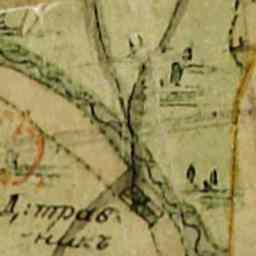 Д: трав
никъ